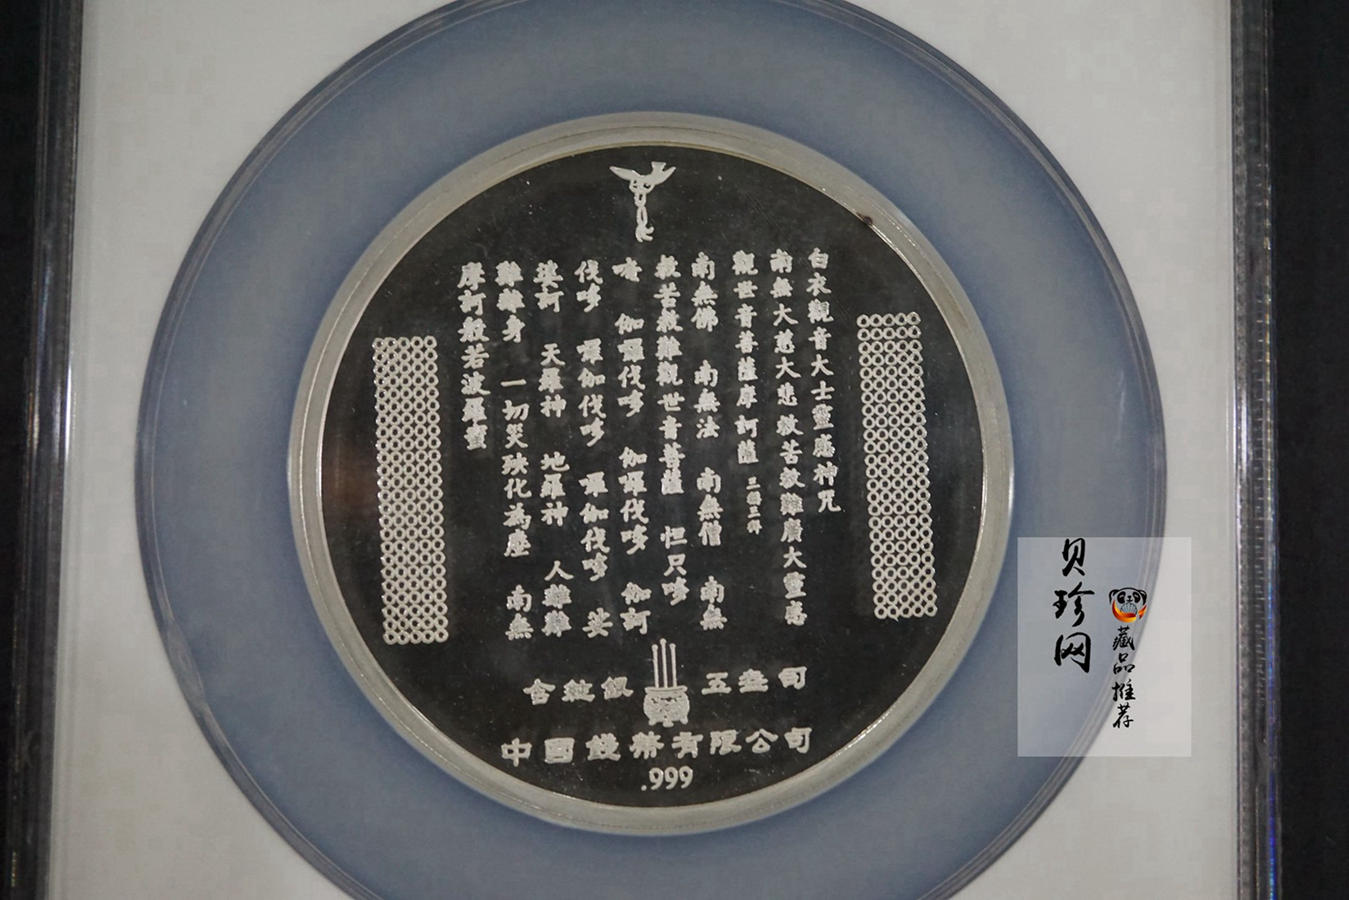 白衣觀音大士靈應神咒
南無大慈大悲救苦救難廣大靈感
觀世音菩薩摩柯薩 三稱三拜
南無佛 南無法 南無僧 南無
救苦救難觀世音菩薩 怛只哆
唵 伽囉伐哆 伽囉伐哆 伽訶
伐哆 囉伽伐哆 囉伽伐哆 娑
婆訶 天羅神 地羅神 人離難
難離身 一切災殃化為塵 南無
摩訶般若波羅蜜
含純銀 五盎司
中國錢幣有限公司
.999
贝珍网
藏品推荐